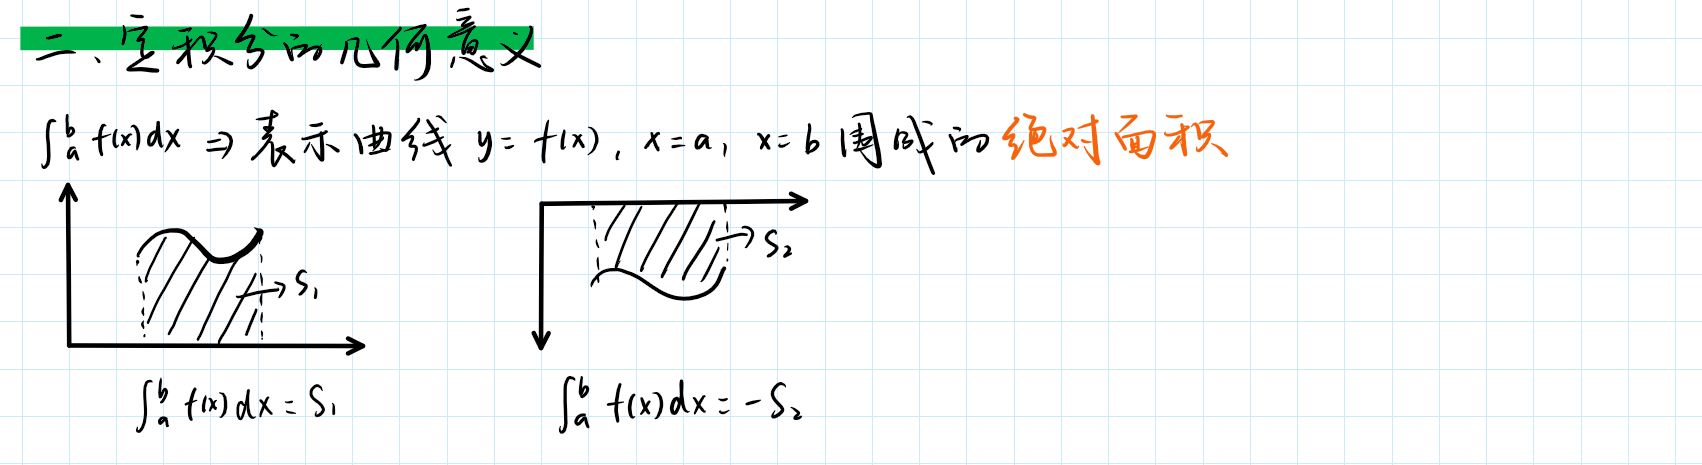 二、定积分的几何意义
∫ₐᵇ f(x)dx ⇒ 表示曲线 y=f(x), x=a, x=b 围成的绝对面积
S₁
S₂
∫ₐᵇ f(x)dx=S₁
∫ₐᵇ f(x)dx=-S₂